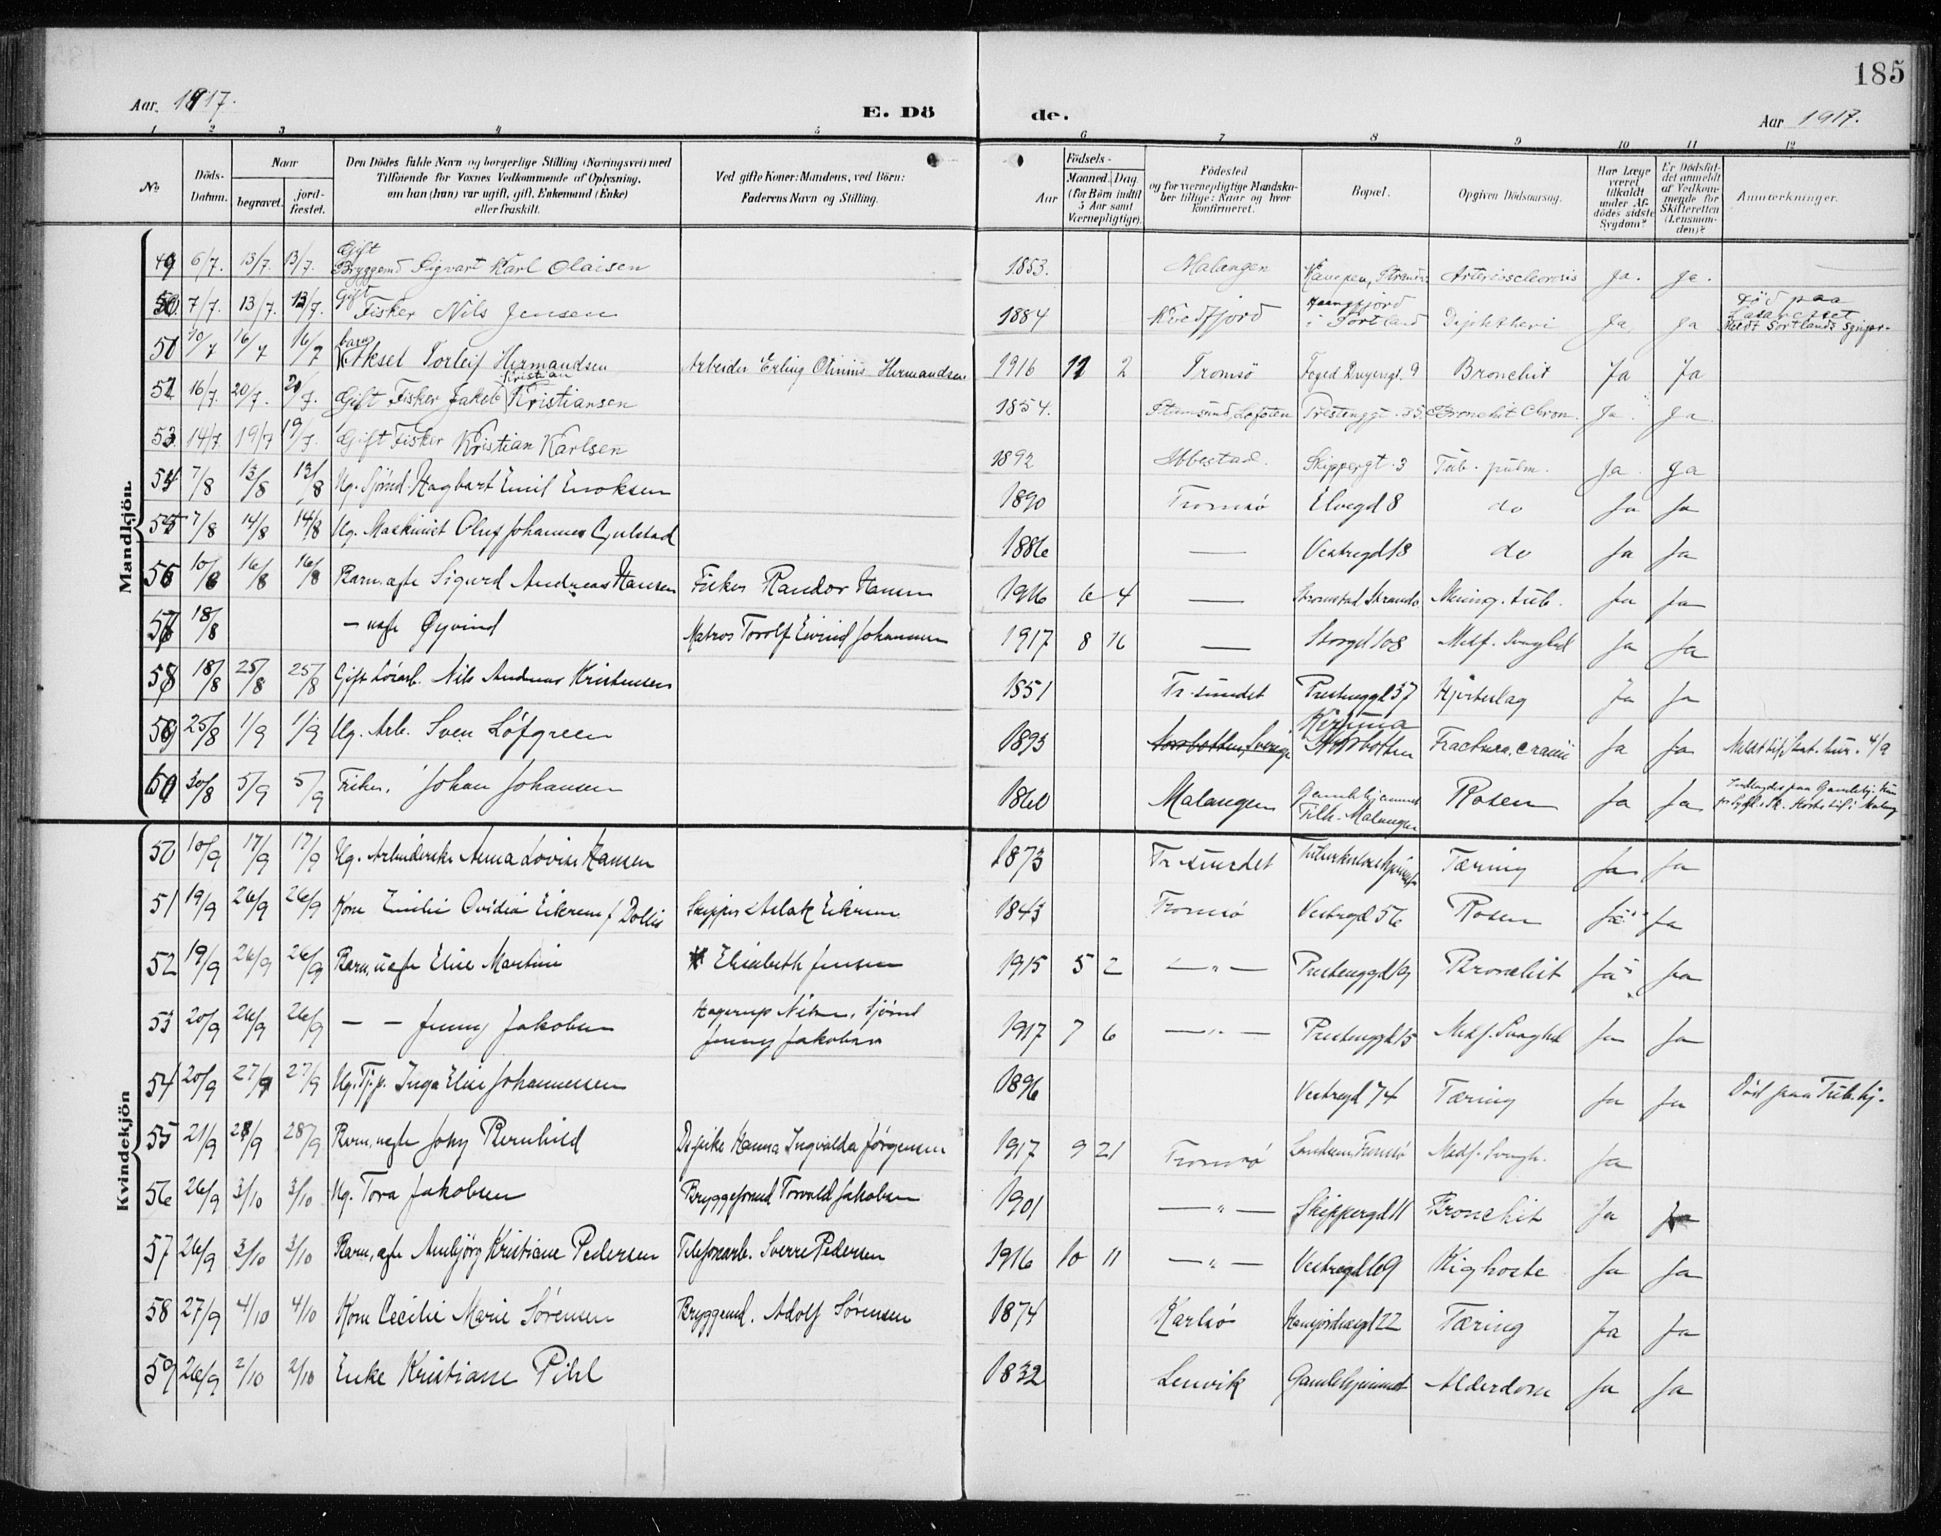 185
Aar. 1917.
E. Dö
de.
Aar 1917.
1 2 3 4 5 6 7 8 9 10 11 12
No
Döds-Datum.
Naar
begravet.
jord-fæstet.
Den Dödes fulde Navn og borgerlige Stilling (Næringsvei) med
Tilföiende for Voxnes Vedkommende af Oplysning,
om han (hun) var ugift, gift, Enkemand (Enke)
eller fraskilt.
Ved gifte Koner: Mandens, ved Börn:
Faderens Navn og Stilling.
Födsels-
Aar
Maaned. Dag.
(for Börn indtil
5 Aar samt
Værnepligtige).
Födested
og for værnepligtige Mandska-
ber tillige: Naar og hvor
konfirmeret.
Bopæl.
Opgiven Dödsaarsag.
Har Læge
været
tilkaldt
under Af-
dödes sidste
Sygdom?
Er Dödsfal-
det anmeldt
af Vedkom-
mende for
Skifteretten
(Lensman-
den)?
Anmerkninger.
Mandkjön.
49 6/7. 13/7. 13/7. Gift Bryggemd Sigvart Karl Olaisen 1853. Malangen Strands Arteriosclerosis Ja. Ja.
50 7/7 13/7. 13/7. Gift Fisker Nils Jensen 1884 Kvedfjord i Sortland Diphtheri Ja Ja Död paa Lasarettet
51 10/7 16/7 16/7 barn Aksel Torleif Hermandsen Arbeider Erling Olinius Hermandsen 1916 11 2 Tromsö 9 Bronchit Ja Ja
52 16/7. 20/7. 20/7. Gift Fisker Jakob Kristian Kristiansen 1854. Stamsund, Lofoten Bronchit Chron. Ja. Ja
53. 14/7 19/7 19/7. Gift Fisker Kristian Karlsen 1892 Ibbestad. Skippergt. 3 Tub. pulm. Ja. Ja
54 7/8 13/8 13/8 Ug. Sjömd. Hagbart Emil Enoksen 1890 Tromsö Elvegd 8 do Ja Ja
55 7/8 14/8 14/8 Ug. Maskinist Oluf Johannes 1886 — Vestregd 18 do Ja Ja
56 10/8 16/8 16/8 Barn, ægte Sigurd Andreas Hansen Fisker Randor Hansen 1916 6 4 — Strands Mening. tub. Ja Ja
57 18/8 — uægte Øyvind Matros Torolf Eivind Johansen 1917 8 16 — Storgd 108 Medf. Svaghed Ja Ja
58 18/8 25/8 25/8 Gift Nils Andreas Kristensen 1851 Tr.sundet Prestenggd 37 Hjerteslag Ja Ja
59 25/8 1/9 1/9 Ug. Arb. Sven Löfgreen 1893 Norrbotten, Sverige Kiruna Norrbotten Fractura cranii Ja Ja 4/9
60 30/8 5/9 5/9 Fisker. Johan Johansen 1860 Malangen Gamlehjemmet Tilh. Malangen Rosen Ja Ja
Kvindekjön
50 10/9 17/9 17/9 Ug. Arbeiderske Anna Lovise Hansen 1873 Tr.sundet Tæring Ja Ja
51 19/9 26/9 26/9 Kone Emilie Ovidia Eikrem f. Skipper Aslak Eikrem 1843 Tromsö Vestregd 56 Rosen Ja Ja
52 19/9 26/9 26/9 Barn, uægte Elise Martine Elisabeth Jensen 1915 5 2 — " — Prestenggd 19 Bronchit Ja Ja
53 20/9 26/9 26/9 — — Jenny Jakobsen Hagerup Nilsen, Sjömd Jenny Jakobsen 1917 7 6 — " — Prestenggd 15 Medf. Svaghed Ja Ja
54 20/9 27/9 27/9 Ug. Tj.p. Inga Elise Johannessen 1896 Vestregd 74 Tæring Ja Ja Död paa Tub.hj.
55 21/9 28/9 28/9 Barn, uægte Jony Bernhild Hanna Ingvalda Jørgensen 1917 9 21 Tromsö Medf. Svagh. Ja
56 26/9 3/10 3/10 Ug. Tora Jakobsen Bryggeformd Torvald Jakobsen 1901 — " — Skippergd 11 Bronchit Ja Ja
57 26/9 3/10 3/10 Barn, ægte Ambjörg Kristiane Pedersen Telefonarb. Sverre Pedersen 1916 10 11 — " — Vestregd 69 Kighoste Ja Ja
58 27/9 4/10 4/10 Kone Cecilie Marie Sörensen Bryggemd. Adolf Sörensen 1874 Karlsö 22 Tæring Ja Ja
59 26/9 2/10 2/10 Enke Kristiane Pihl 1832 Lenvik Gamlehjemmet Alderdom Ja Ja